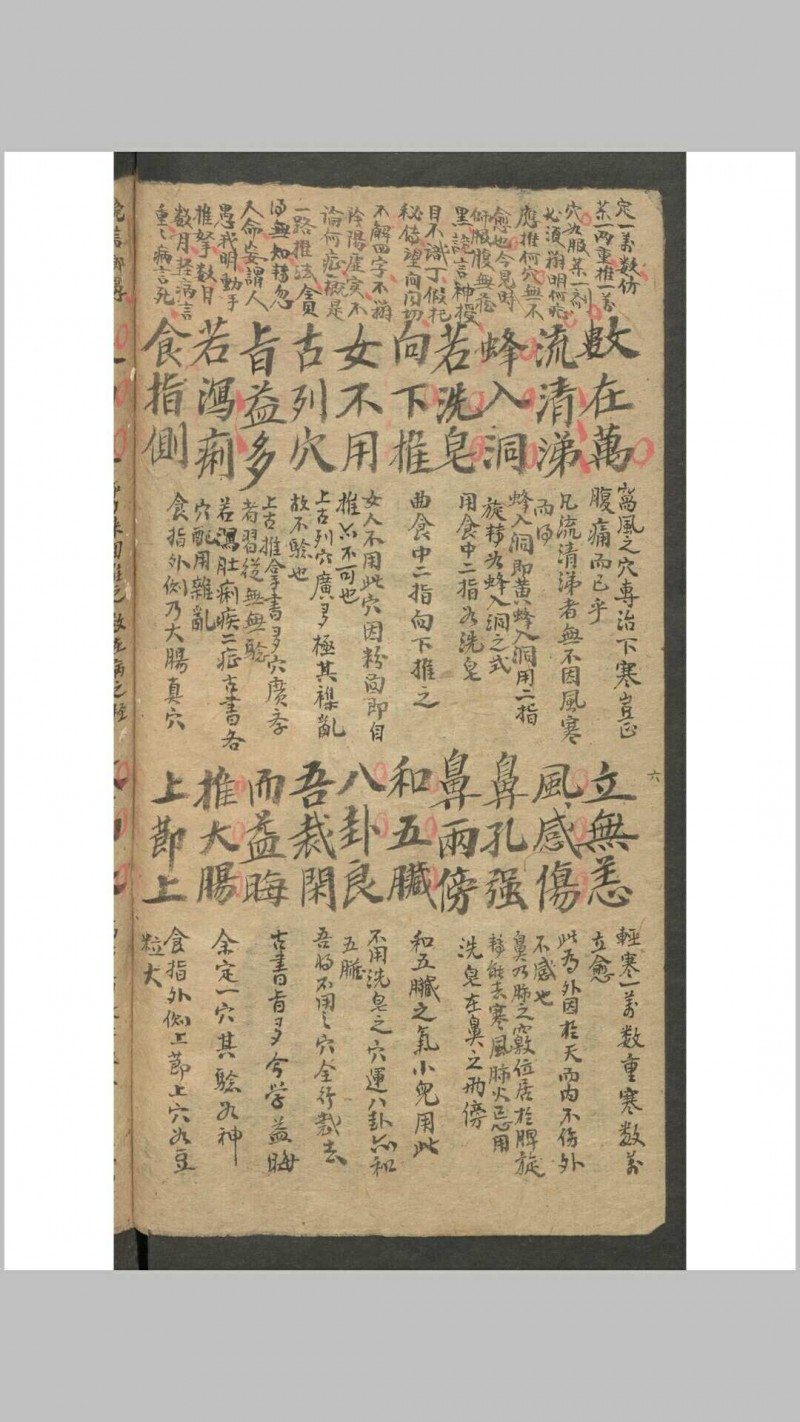 定一萬數份
一兩重推一萬
穴如服茶一劑
必須搦明何症
應推何穴無不
愈也今見時
目不識丁假托
秘傳望聞問切
不解四字不搦
陰陽虛實不
論何症概是
一路推法貪
人命妄謂人
愚我明動手
推拏數日
數月輕病言
重〻病言死
數在萬
窩風之穴專治下寒豈止
腹痛而已乎
立無恙
輕寒一萬數重寒數萬
立愈
流清涕
凡流清涕者無不因風寒
而得
風感傷
此為外因於天而內不傷外
不感也
蜂入洞
蜂入洞即黃蜂入洞用二指
旋轉如蜂入洞之式
鼻孔强
鼻乃肺之竅位居於脾旋
轉能去寒風肺火忌用
若洗皂
用食中二指如洗皂
鼻兩傍
洗皂在鼻之兩傍
向下推
曲食中二指向下推之
和五臟
和五臟之氣小兒用此
女不用
女人不用此穴因粉面即自
推亦不可也
八卦良
不用洗皂之穴運八卦亦和
五臟
古列穴
上古列穴廣多極其襍亂
故不驗也
吾裁閑
吾將不用之穴全行裁去
旨益多
上古推拿書多穴廣季
者習從無無驗
而益晦
古書旨多今学益晦
若瀉痢
若瀉肚痢疾二症古書各
穴配用雜亂
推大腸
余定一穴其驗如神
食指側
食指外側乃大腸真穴
上節上
食指外側上節上穴如豆
粒大
六